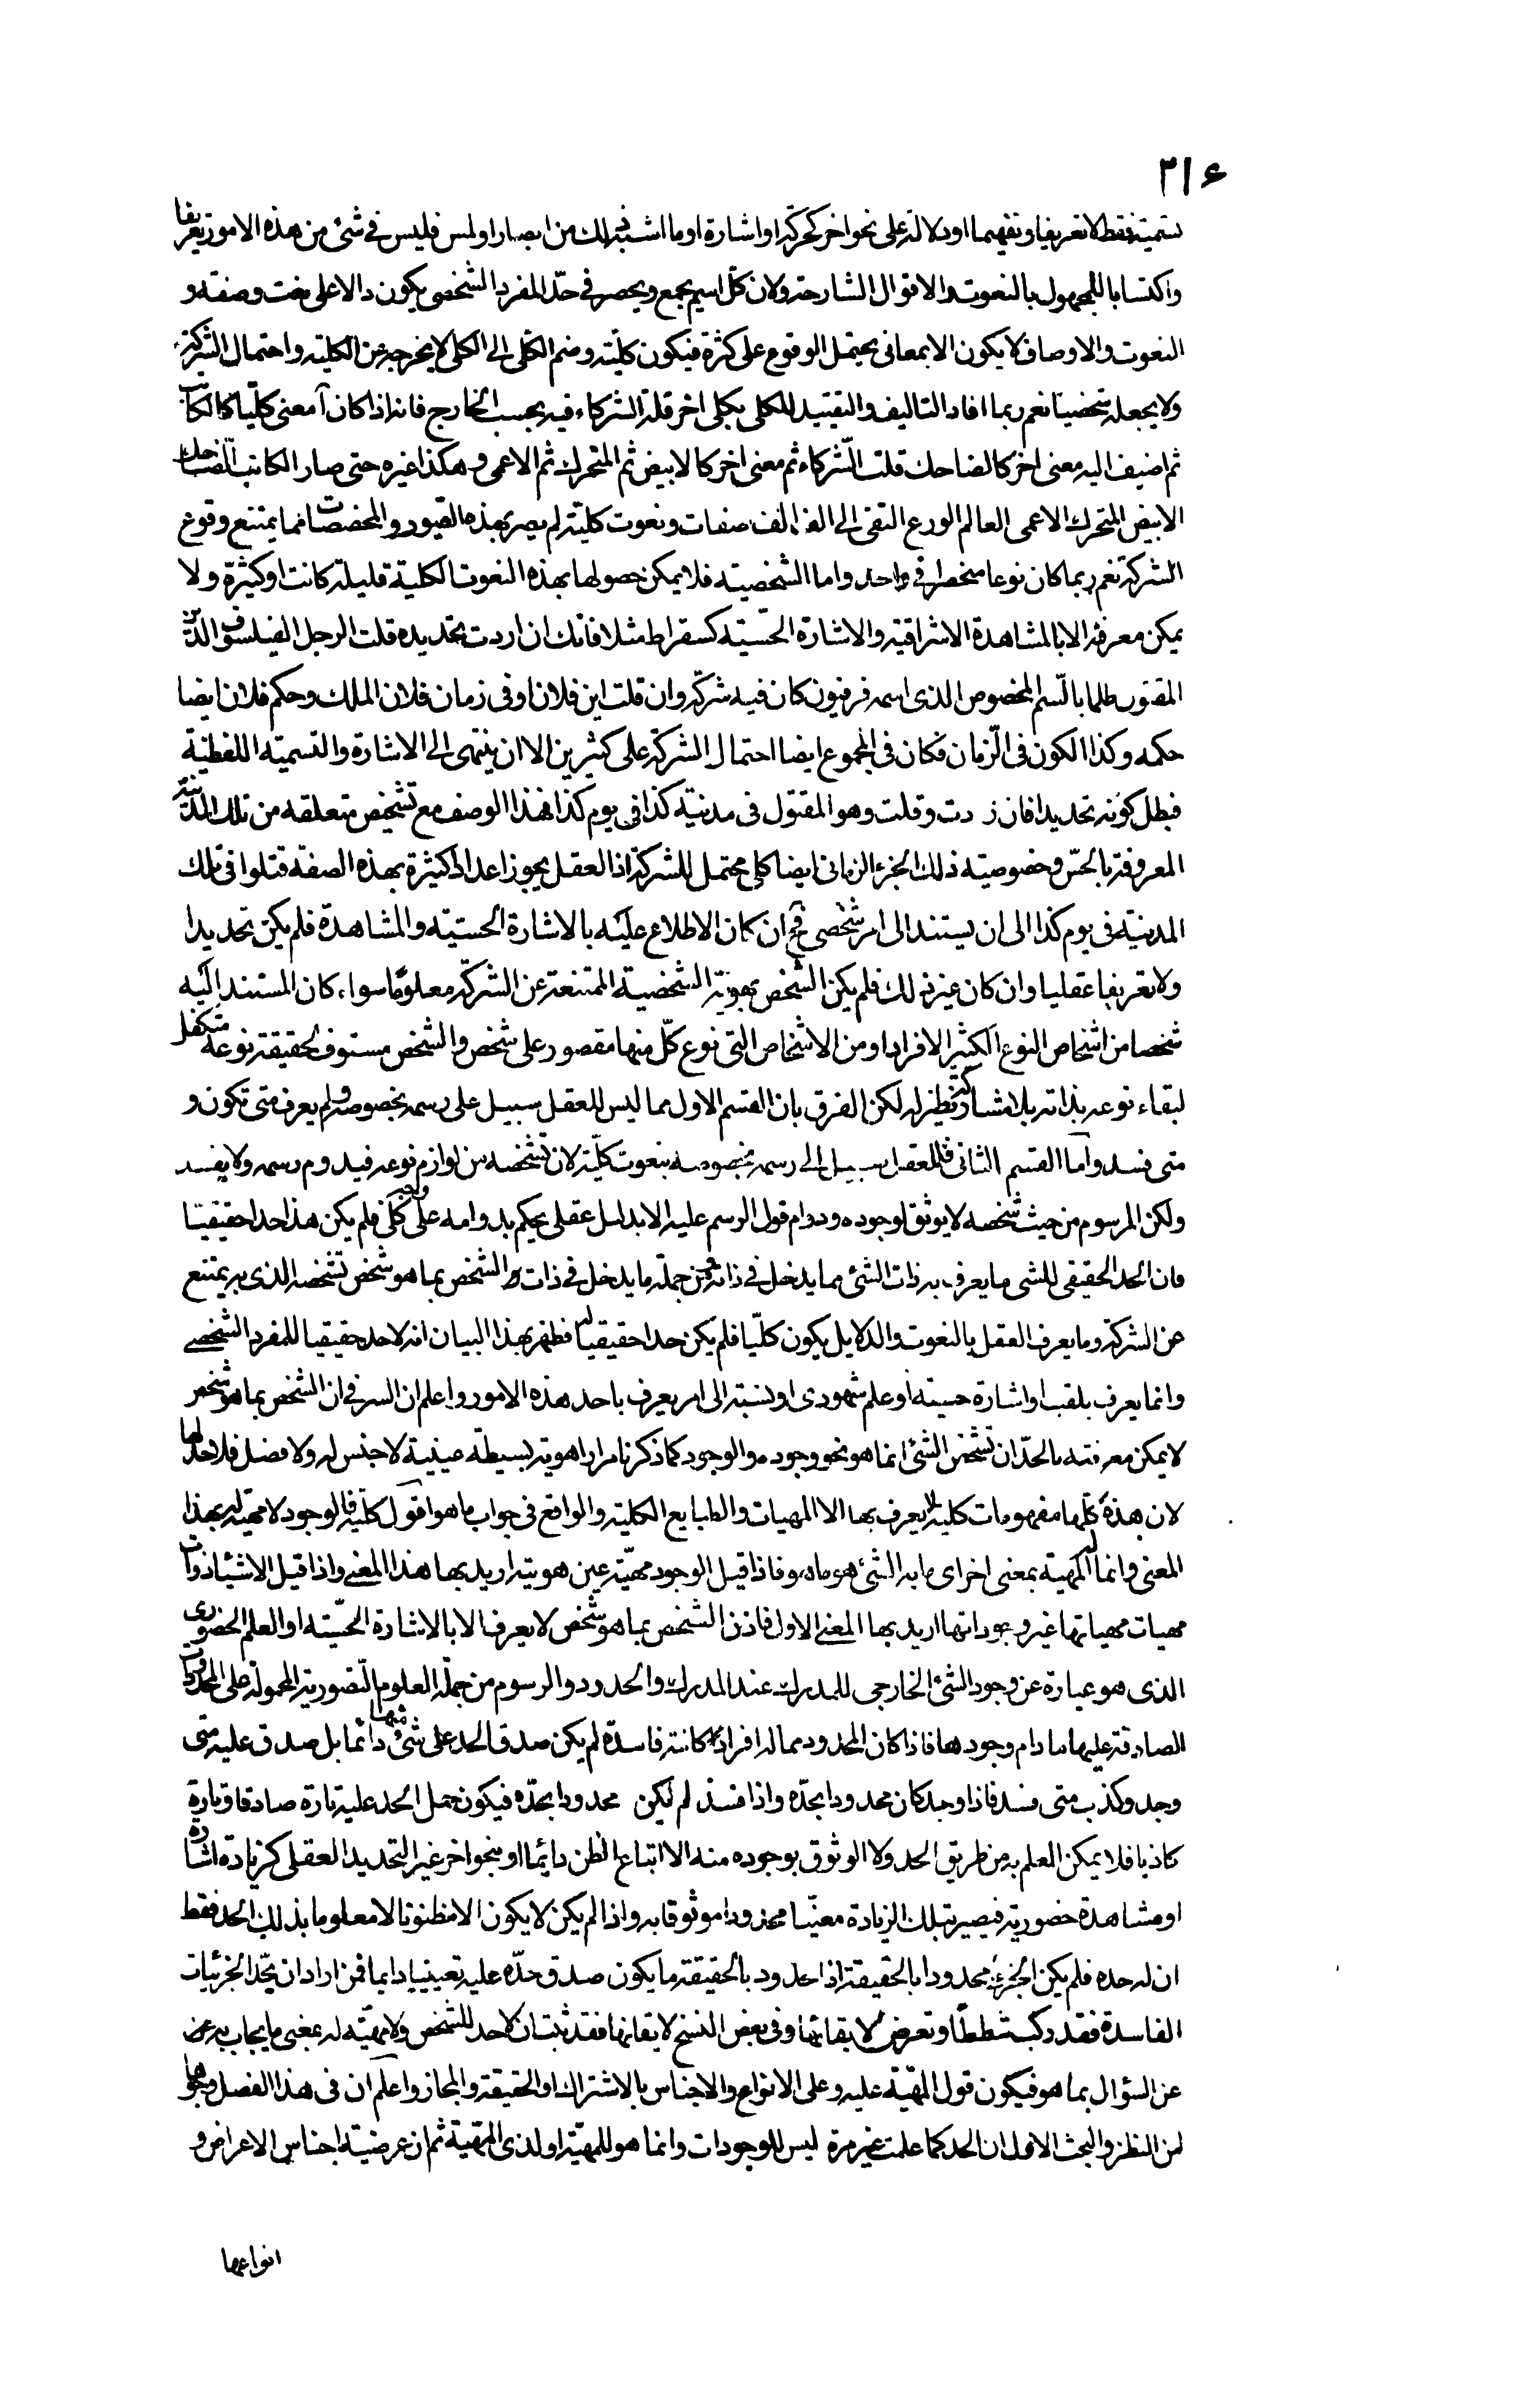 ٢١٤
تسمية فقط لا تعريفا وتفهيما او دلالة على نحو اخر كحركة او اشارة او ما اشبه ذلك من ابصار او لمس فليس فى شئ من هذه الامور تعريفا
واكتسابا للمجهول بالنعوت والاقوال الشارحة ولان كل اسم يجمع ويحصر فى حدّ المفرد الشخصى يكون دالا على نعت وصفة و
النعوت والاوصاف لا يكون الا بمعانى يحتمل الوقوع على كثرة فيكون كلية وضم الكلى الى الكلى لا يخرجه عن الكلية واحتمال الشركة
ولا يجعله شخصيا نعم ربما افاد التاليف والتقييد للكلى بكلى اخر قلة الشركاء فيه بحسب الخارج فانه اذا كان آ معنى كليا كالكاتب
ثم اضيف اليه معنى اخر كالضاحك قلت الشركاء ثم معنى اخر كالابيض ثم المتحرك ثم الاعمى وهكذا غيره حتى صار الكاتب الضاحك
الابيض المتحرك الاعمى العالم الورع التقى الى الف الف صفات ونعوت كلية لم يصر بهذه القيود والمخصصات مما يمتنع وقوع
الشركة نعم ربما كان نوعا منحصرا فى واحد واما الشخصية فلا يمكن حصولها بهذه النعوت الكلية قليلة كانت او كثيرة ولا
يمكن معرفته الا بالمشاهدة الاشراقية والاشارة الحسّية كسقراط مثلا فانك ان اردت تحديده قلت الرجل الفيلسوف الديّن
المقتول ظلما بالسم المخصوص الذى اسمه فرفنيون كان فيه شركة وان قلت ابن فلان او فى زمان فلان الملك وحكم فلان ايضا
حكمه وكذا الكون فى الزمان فكان فى المجموع ايضا احتمال الشركة على كثيرين الا ان ينتهى الى الاشارة والتسمية اللفظية
فبطل كونه تحديدا فان زدت وقلت وهو المقتول فى مدينة كذا فى يوم كذا فهذا الوصف مع تشخيص متعلقه من تلك المدينة
المعروفة بالحسّ وخصوصية ذلك الجزء الزمانى ايضا كلى محتمل للشركة اذ العقل يجوز اعدادا كثيرة بهذه الصفة قتلوا فى تلك
المدينة فى يوم كذا الى ان يستند الى امر شخصى فح ان كان الاطلاع عليه بالاشارة الحسيّة والمشاهدة فلم يكن تحديدا
ولا تعريفا عقليا وان كان غير ذلك فلم يكن الشخص بهويته الشخصية الممتنعة عن الشركة معلومًا سواء كان المستند اليه
شخصا من اشخاص النوع الكثير الافراد او من الاشخاص التى نوع كلّ منها مقصور على شخص والشخص مستوف لحقيقة نوعه متكفل
لبقاء نوعه بذاته بلا مشارك ونظير له لكن الفرق بان القسم الاول مما ليس للعقل سبيل على رسمه بخصوصه ولم يعرف متى تكون و
متى فسد واما القسم الثانى فللعقل سبيل الى رسمه بخصوصه بنعوت كلّية لان تشخصه من لوازم نوعه فيدوم رسمه ولا يفسد
ولكن المرسوم من حيث شخصه لا يوثق لوجوده ودوام قول الرسم عليه الا بدليل عقلى يحكم بدوامه على وجه كلى فلم يكن هذا حدا حقيقيّا
فان الحد الحقيقى للشى ما يعرف به ذات الشئ مما يدخل فى ذاته ومن جملة ما يدخل فى ذات الشخص بما هو شخص تشخصه الذى به يمتنع
عن الشركة وما يعرف العقل بالنعوت والدلايل يكون كلّيا فلم يكن حدا حقيقيا له فظهر بهذا البيان انه لا حد حقيقيا للمفرد الشخصى
وانما يعرف بلقب او اشارة حسية او علم شهودى او نسبة الى امر يعرف باحد هذه الامور واعلم ان السر فى ان الشخص بما هو شخص
لا يمكن معرفته بالحدّ ان تشخص الشئ انما هو نحو وجوده والوجود كما ذكرنا مرارا هوية بسيطة عينية لا جنس له ولا فصل فلا حد لها
لان هذه كلّها مفهومات كلية لا يعرف بها الا المهيات والطبايع الكلية والواقع فى جواب ما هو اقول كلية فالوجود لا مهية له بهذا
المعنى وانما له المهية بمعنى اخر اى ما به الشئ هو ما هو فاذا قيل الوجود مهيّته عين هويته اريد بها هذا المعنى واذا قيل الاشياء ذوات
مهيات مهياتها غير وجوداتها اريد بها المعنى الاول فاذن الشخص بما هو شخص لا يعرف الا بالاشارة الحسّية او العلم الحضورى
الذى هو عبارة عن وجود الشئ الخارجى للمدرك عند المدرك والحدود والرسوم من جملة العلوم التصورية المحمولة على المحدودات
الصادقة عليها ما دام وجودها فاذا كان المحدود مما له افراد كائنة فاسدة لم يكن صدق الحد على شئ منها دائما بل صدق عليه متى
وجد وكذب متى فسد فاذا وجد كان محدودا بحدّه واذا فسد لم يكن محدودا بحدّه فيكون حمل الحد عليه تارة صادقا وتارة
كاذبا فلا يمكن العلم به من طريق الحد ولا الوثوق بوجوده منه الا اتباع الظن دائما او بنحو اخر غير التحديد العقلى كزيادة اشارة
او مشاهدة حضورية فيصير بتلك الزيادة معيّنا محدودا موثوقا به واذا لم يكن لا يكون الا مظنونا لا معلوما بذلك الحد فقط
ان له حده فلم يكن الجزئى محدودا بالحقيقة اذ المحدود بالحقيقة ما يكون صدق حدّه عليه تعيينيا دايما فمن اراد ان يحّد الجزئيات
الفاسدة فقد ركب شططًا وتعرض لابقائها وفى بعض النسخ لابقائها فقد ثبت ان لا حد للشخص ولا مهيّة له بمعنى ما يجاب به عن
عن السؤال بما هو فيكون قول المهيّة عليه وعلى الانواع والاجناس بالاشتراك او الحقيقة والمجاز واعلم ان فى هذا الفصل وجوها
من النظر والبحث الاول ان الحد كما علمت غير مرة ليس للوجودات وانما هو للمهيّة او لذى المهّية ثم ان عرضيته اجناس الاعراض و
انواعها